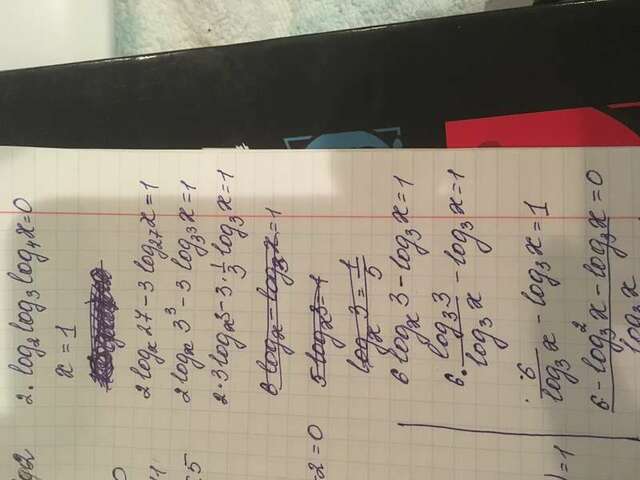 2. log₂ log₃ log₄ x = 0
x = 1
2 logₓ 27 − 3 log₂₇ x = 1
2 logₓ 3³ − 3 log₃³ x = 1
2·3 logₓ 3 − 3·1/3 log₃ x = 1
6 logₓ − log₃ x = 1
5 logₓ 3 = 1
logₓ 3 = 1/5
6 logₓ 3 − log₃ x = 1
6· log₃ 3 / log₃ x − log₃ x = 1
6 / log₃ x − log₃ x = 1
6 − log₃² x − log₃ x = 0
log₃ x
-2 = 0
) = 1